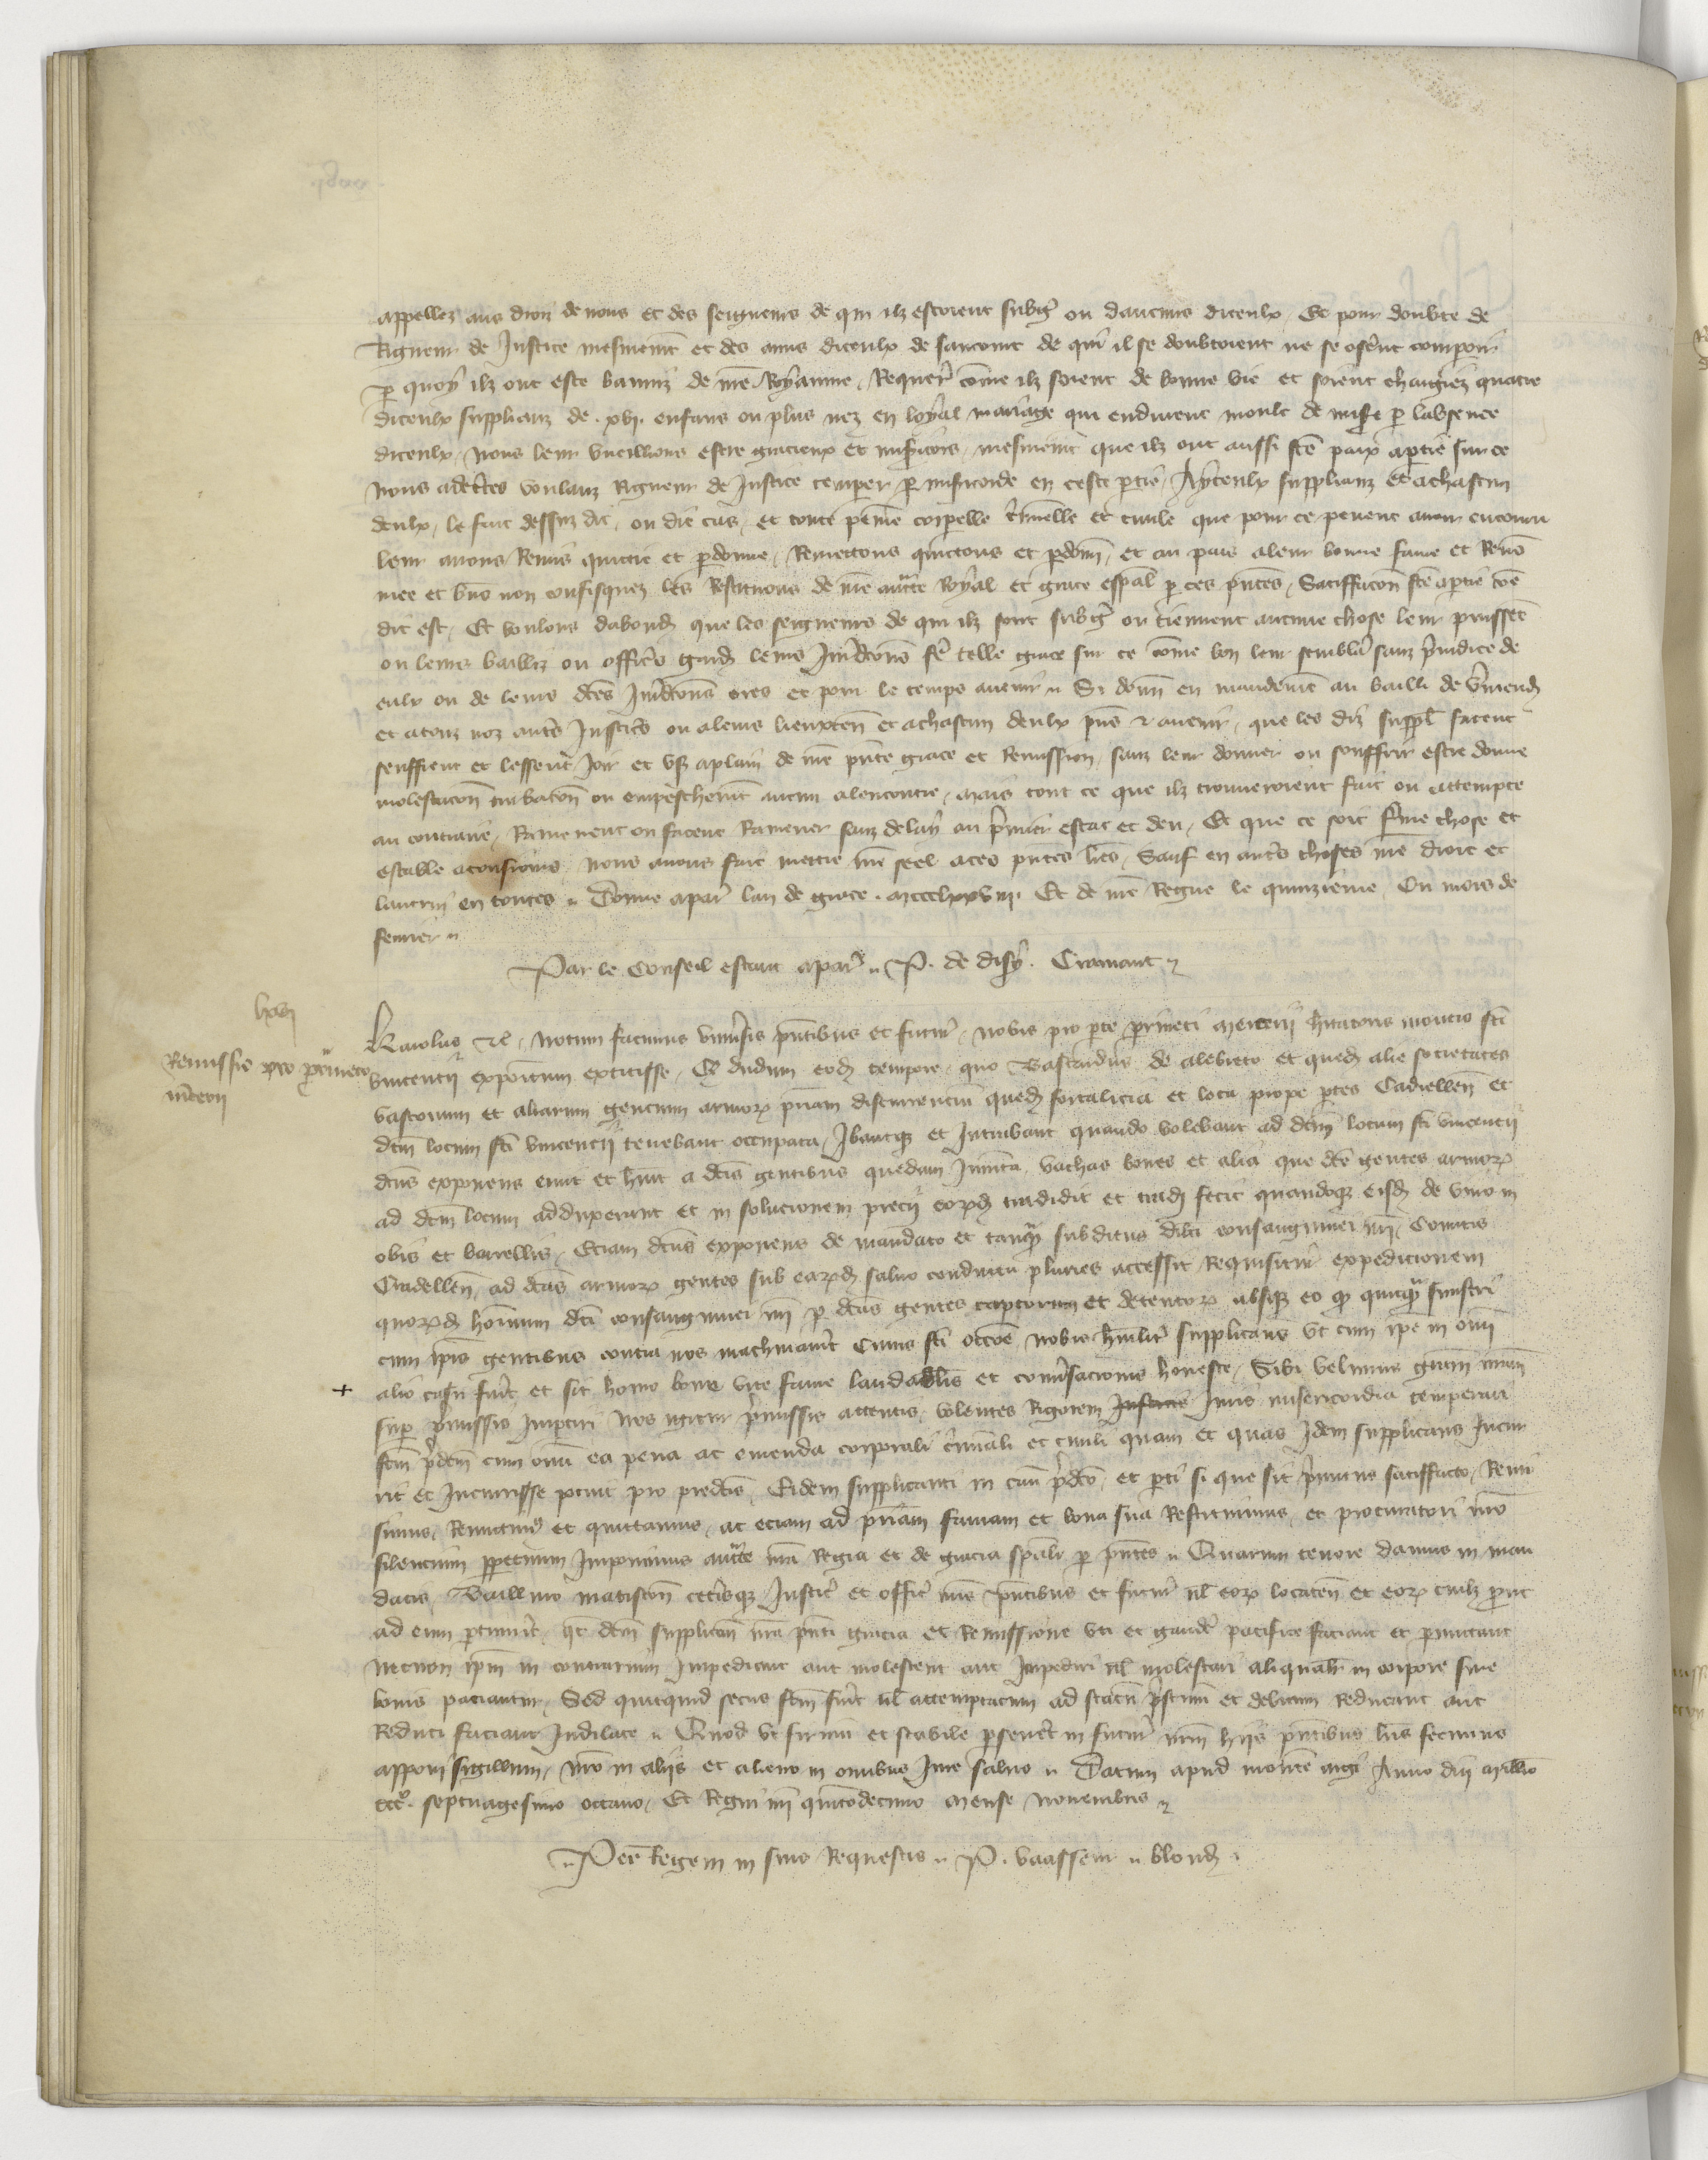 appellez aus droiz de nous et des seigneurs de qui ilz estoient subgez ou daucuns diceulx Et pour doubte de
Rigueur de Justice mesment et des amis diceulx de sancourt de qui il se doubtoient ne se oserent comparoir
p quoy ilz ont este banniz de nre Royaume Requer come ilz soient de bonne vie et soient chargiez quatre
diceulx supplianz de xvi enfans ou plus nez en loyal mariage qui endurent moult de misere p labsence
diceulx nous leur vueillions estre gracieux et misericors mesment que ilz ont aussi fce paix a partie sur ce
Nous adcertes voulanz Rigueur de Justice temper p misericorde en ceste partie Ayceulx supplianz et achascun
deulx le fait dessuz dit ou dit cas et toute peine corporelle criminelle et civile que pour ce pevent avoir encouru
leur avons Remis quictie et pdonne Remettons quictons et pdonn et au pais a leur bonne fame et Renom
mee et biens non confisquez les Restituons de nre aucte Royal et grace espal p ces pntes Satiffacon fce a partie come
dit est Et voulons dabond que les seigneurs de qui ilz sont subgez ou tiennent aucune chose leur puissent
ou leurs bailliz ou officiers gard leurs Juridicons fe telle grace sur ce come bon leur semblera sanz preiudice de
eulx ou de leurs dces Juridicons ores et pour le temps avenir Si donn en mandement au bailli de Vermend
et a touz noz autres Justiciers ou a leurs lieuxten et achascun deulx pns et avenir que les diz suppl facent
seuffrent et lessent Joir et user aplain de nre pnte grace et Remission sanz leur donner ou souffrir estre donne
molestacon turbacon ou empeschement aucun alencontre mais tout ce que ilz trouveroient fait ou attempte
au contraire Ramenent ou facent Ramener sanz delay au premier estat et deu Et que ce soit ferme chose et
estable a tousiours Nous avons fait mettre nre seel a ces pntes lres Sauf en autres choses nre droit et
lautrui en toutes Donne a paris lan de grace mccclxxviii Et de nre Regne le quinzieme Ou mois de
fevrier
Par le Conseil estant a paris P. de disy. Cramant
Remissio pro perrineto
mercerii
Karolus etc Notum facimus universis pntibus et futuris Nobis pro parte perrineti mercerii habitatoris montis sci
vincentii expositum extitisse Q dudum eod tempore quo Bastardus de alebreto et qued alie societates
vasconum et aliarum gencium armor priam discurrencium qued fortalicia et loca prope partes Cadrellen et
dcm locum sci vincentii tenebant occupata Ibantq et Intrabant quando volebant ad dcm locum sci vincentii
dcus exponens emit et huit a dcis gentibus quedam Jumta vachas boves et alia que dce gentes armor
ad dcm locum adduxerant et in solucionem precii eord tradidit et trad fecit quandoq eisd de vino in
obis et barrellis Eciam dcus exponens de mandato et tanq subditus dilcti consanguinei nri Comitis
Cadrellen ad dcas armor gentes sub eard salvo conductu pluries accessit Requisitur expedicionem
quord hominum dci consanguinei nri p dcas gentes captorum et detentor absq eo q quicq sinistri
cum ipis gentibus contra nos machinaverit Cuius fci occone nobis humiliter supplicans ut cum ipe in omi
+ alio casu fuerit et sit homo bone vite fame laudabilis et conversacionis honeste Sibi velimus gram nram
sup premissis Impartiri Nos igitur premissis attentis volentes Rigorem Justicie Juris misericordia temperari
fcm predcm cum omi ea pena ac emenda corporali criminali et civili quam et quas Idem supplicans Incur
rit et Incurrisse potuit pro predcis Eidem supplicanti in casu predco et parti si que sit primitus satisffacto Remi
simus Remittimus et quittamus ac eciam ad priam famam et bona sua Restituimus et procuratori nro
silencium perpetuum Imponimus aucte nra Regia et de gracia spali p pntes Quarum tenore damus in man
datis Baillivo matiscon ceterisq Justic et offic nris pntibus et futuris vel eor locaten et eor cuilz prout
ad eum ptinuerit qt dcm supplican nra pnti gracia et Remissione uti et gaudere pacifice faciant et pmittant
necnon ipm in contrarium Impediant aut molestent aut Impediri vel molestari aliquatr in corpore sive
bonis paciantur Sed quicquid secus fcm fuerit vel attemptatum ad statum pristinum et debitum Reducant aut
Reduci faciant Indilate Quod ut firmum et stabile perseveret in futur nrm hiis pntibus lris fecimus
apponi sigillum nro in aliis et alieno in omnibus Jure salvo Datum apud montem argi Anno dni millio
ccc septuagesimo octavo Et Regni nri quintodecimo mense Novembris
Per Regem in suis Requestis P. vaassem blond